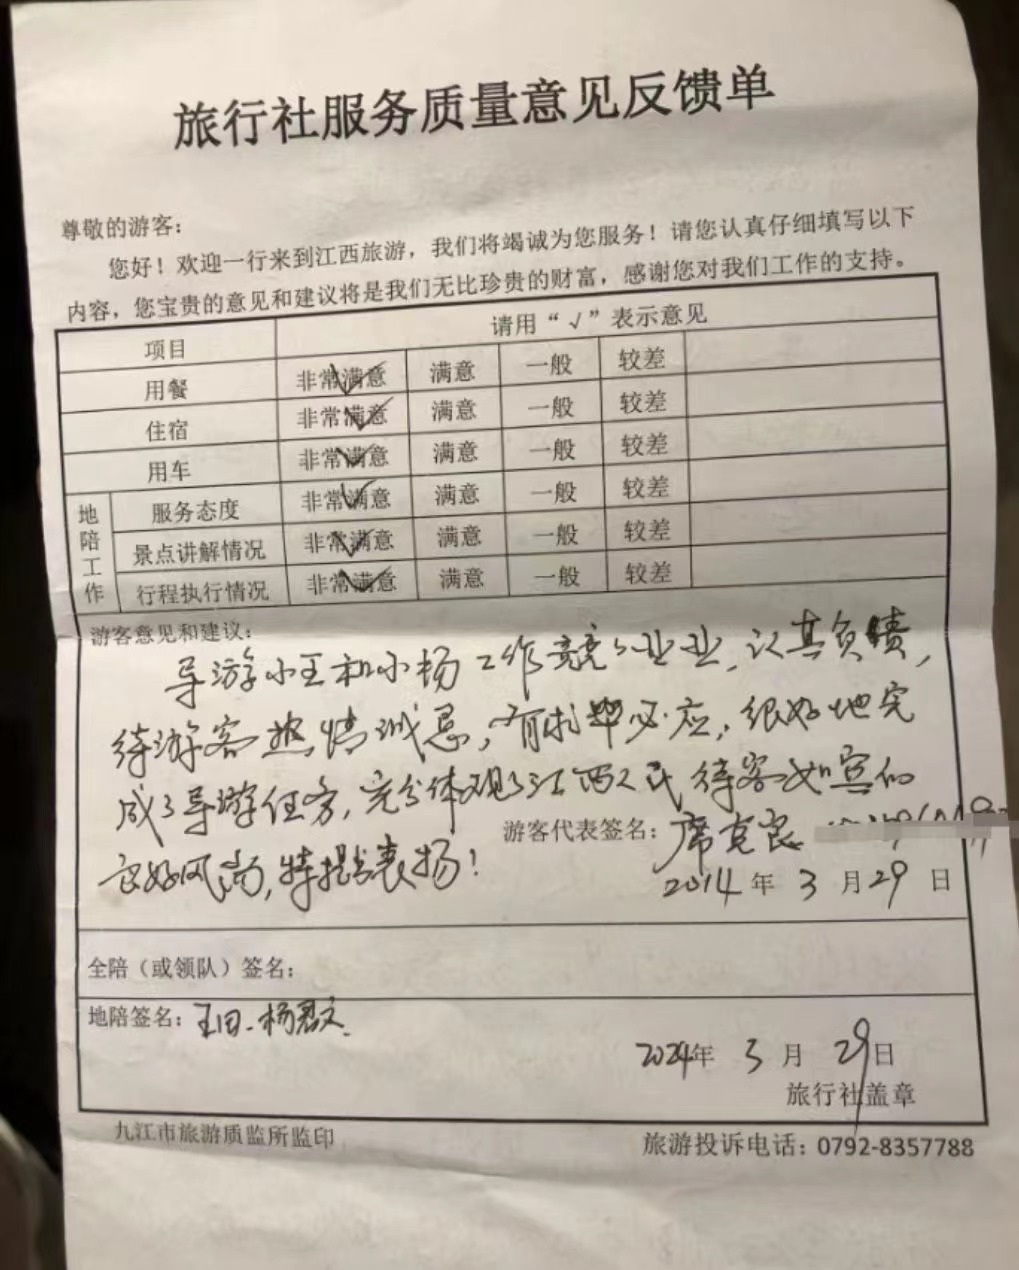 旅行社服务质量意见反馈单
尊敬的游客：
您好！欢迎一行来到江西旅游，我们将竭诚为您服务！请您认真仔细填写以下
内容，您宝贵的意见和建议将是我们无比珍贵的财富，感谢您对我们工作的支持。
项目 请用“√”表示意见
用餐 非常满意 满意 一般 较差
住宿 非常满意 满意 一般 较差
用车 非常满意 满意 一般 较差
地陪工作 服务态度 非常满意 满意 一般 较差
景点讲解情况 非常满意 满意 一般 较差
行程执行情况 非常满意 满意 一般 较差
游客意见和建议：
导游小王和小杨工作兢兢业业，认真负责，
待游客热情诚恳，有求必应，很好地完
成了导游任务，充分体现了江西人民待客如宾的
良好风尚，特提出表扬！
游客代表签名：席克良
2014年3月29日
全陪（或领队）签名：
地陪签名：王田、杨君文
2024年3月29日
旅行社盖章
九江市旅游质监所监印 旅游投诉电话：0792-8357788